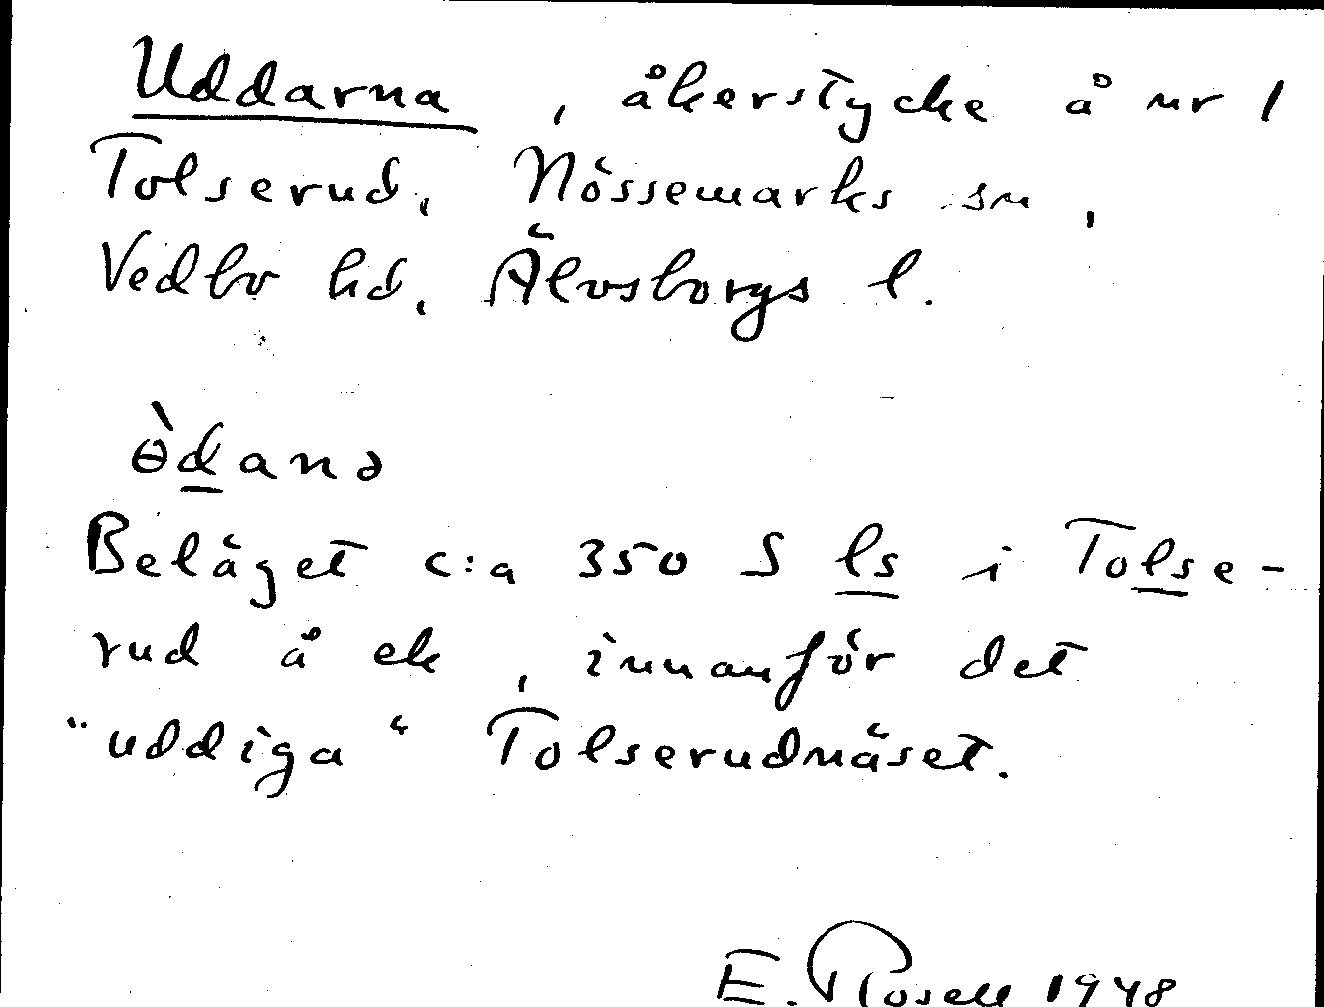 Uddarna, åkerstycke å nr 1
Tolserud, Nössemarks sn,
Vedbo hd, Älvsborgs l.
ɵ̀dana
Beläget c:a 350 S ls i Tolse-
rud å ek, innanför det
"uddiga" Tolserudnäset.
E. Rosell 1948